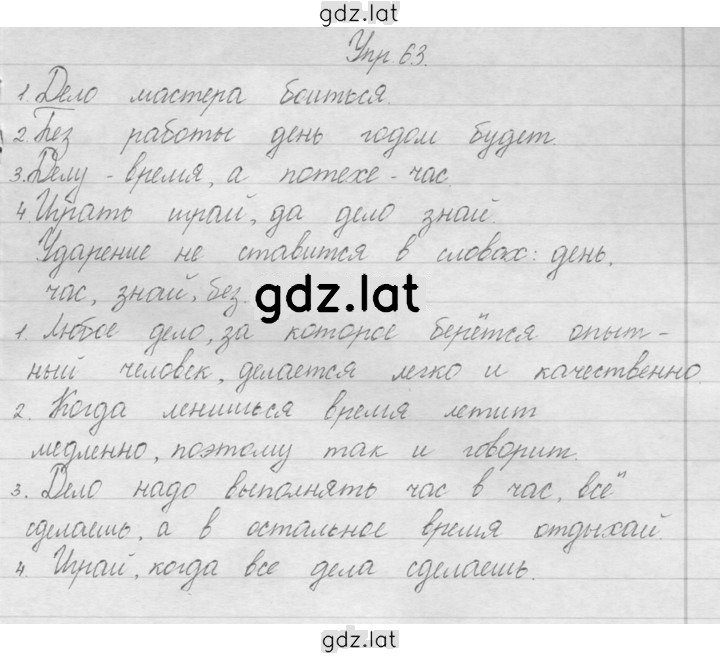 gdz.lat
Упр 63.
1. Дело мастера боиться.
2. Без работы день годом будет.
3. Делу - время, а потехе - час.
4. Играть играй, да дело знай.
Ударение не ставится в словах: день,
час, знай, без.
gdz.lat
1. Любое дело, за которое берётся опыт-
ный человек, делается легко и качественно.
2. Когда ленишься время летит
медленно, поэтому так и говорит.
3. Дело надо выполнять час в час, всё
сделаешь, а в остальное время отдыхай.
4. Играй, когда все дела сделаешь.
gdz.lat